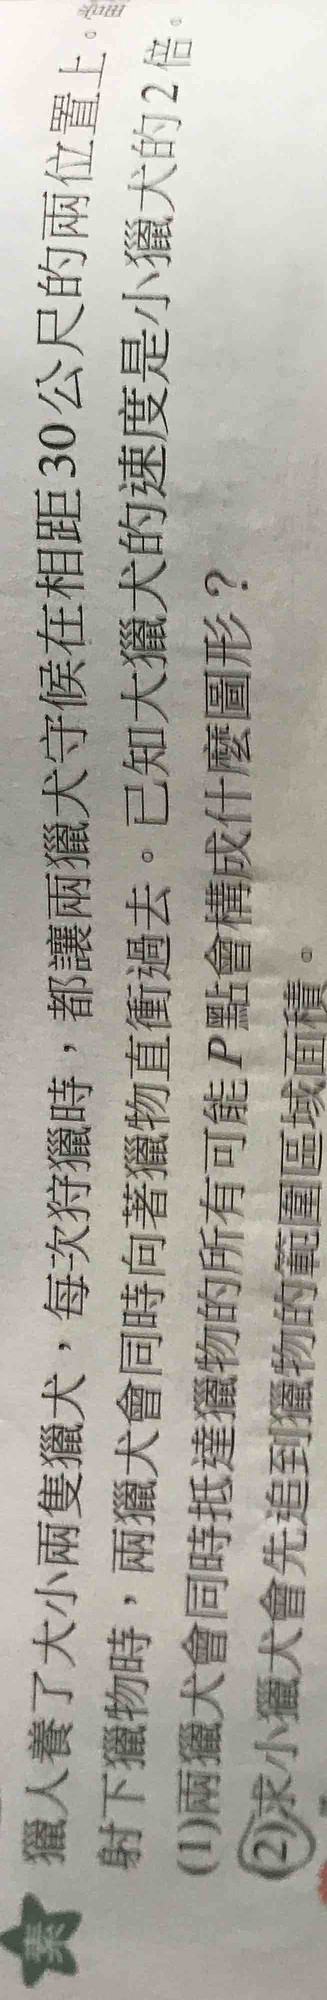 素
獵人養了大小兩隻獵犬，每次狩獵時，都讓兩獵犬守候在相距30公尺的兩位置上。
射下獵物時，兩獵犬會同時向著獵物直衝過去。已知大獵犬的速度是小獵犬的2倍。
(1)兩獵犬會同時抵達獵物的所有可能P點會構成什麼圖形？
(2)求小獵犬會先追到獵物的範圍區域面積。